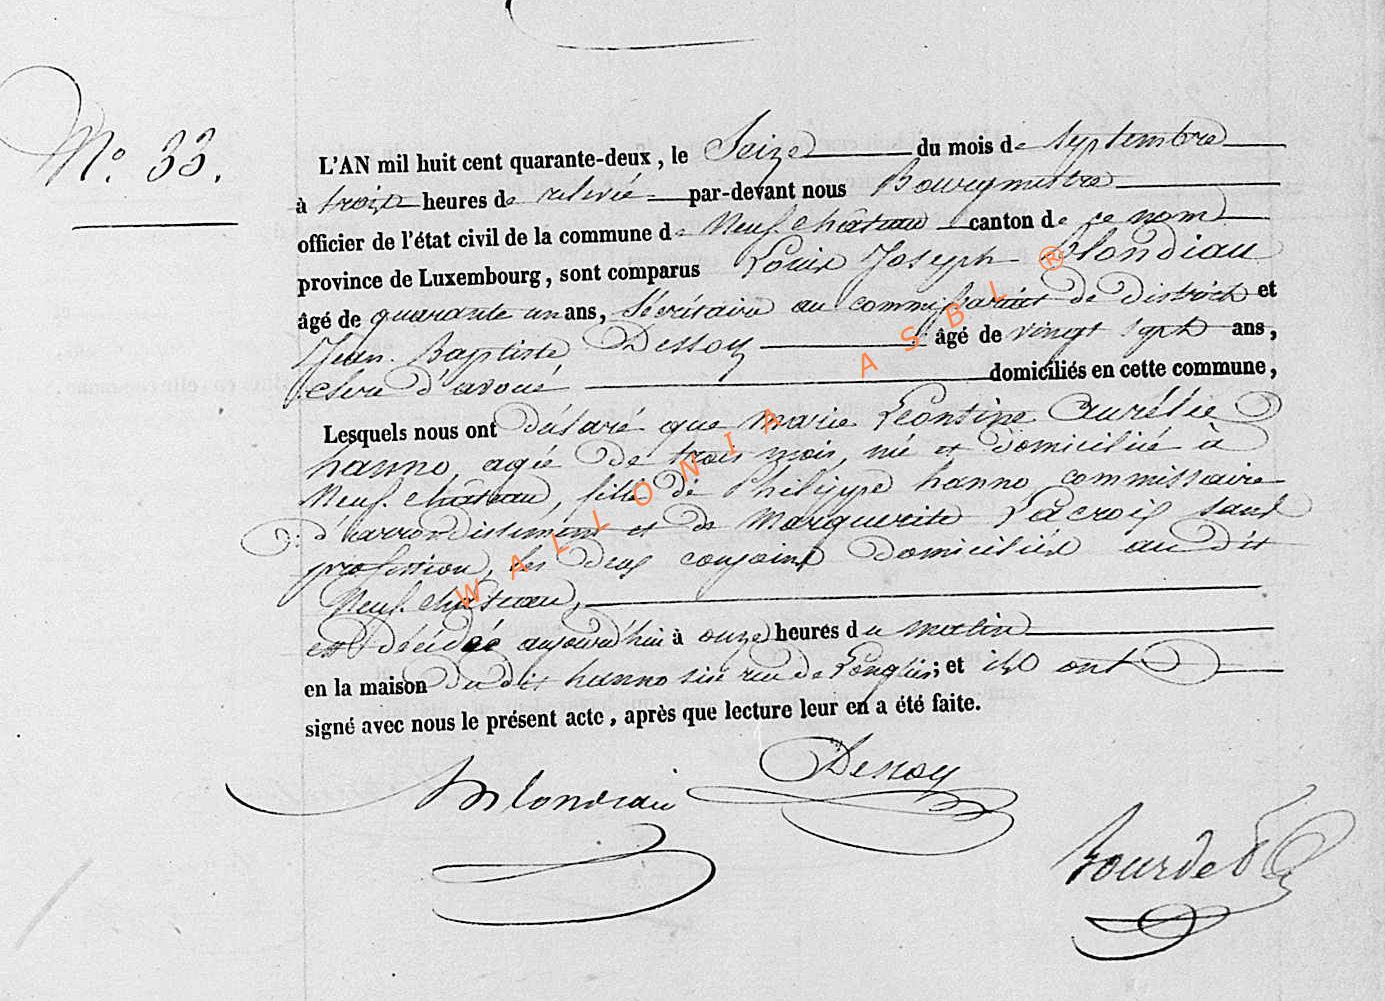 N° 33.
L'AN mil huit cent quarante-deux, le Seize du mois de Septembre
à trois heures de relevée par-devant nous Bourgmestre
officier de l'état civil de la commune de Neufchâteau canton de ce nom
province de Luxembourg, sont comparus Louis Joseph Blondiau
âgé de quarante un ans, Sécrétaire au commissariat de district et
Jean Baptiste Dessoy âgé de vingt sept ans,
clerc d'avoué domiciliés en cette commune,
Lesquels nous ont déclaré que Marie Léontine Aurélie
hanno, agée de trois mois, née et domiciliée à
Neufchâteau, fille de Philippe hanno, commissaire
d'arrondissement et de Marguerite Lacroix sans
profession, les deux conjoints domiciliés au dit
Neufchateau,
est décédée aujourd'hui à onze heures du matin
en la maison du dit hanno sise rue de Longlier; et ils ont
signé avec nous le présent acte, après que lecture leur en a été faite.
Dessoy
Blondiau
WALLONIA ASBL ®